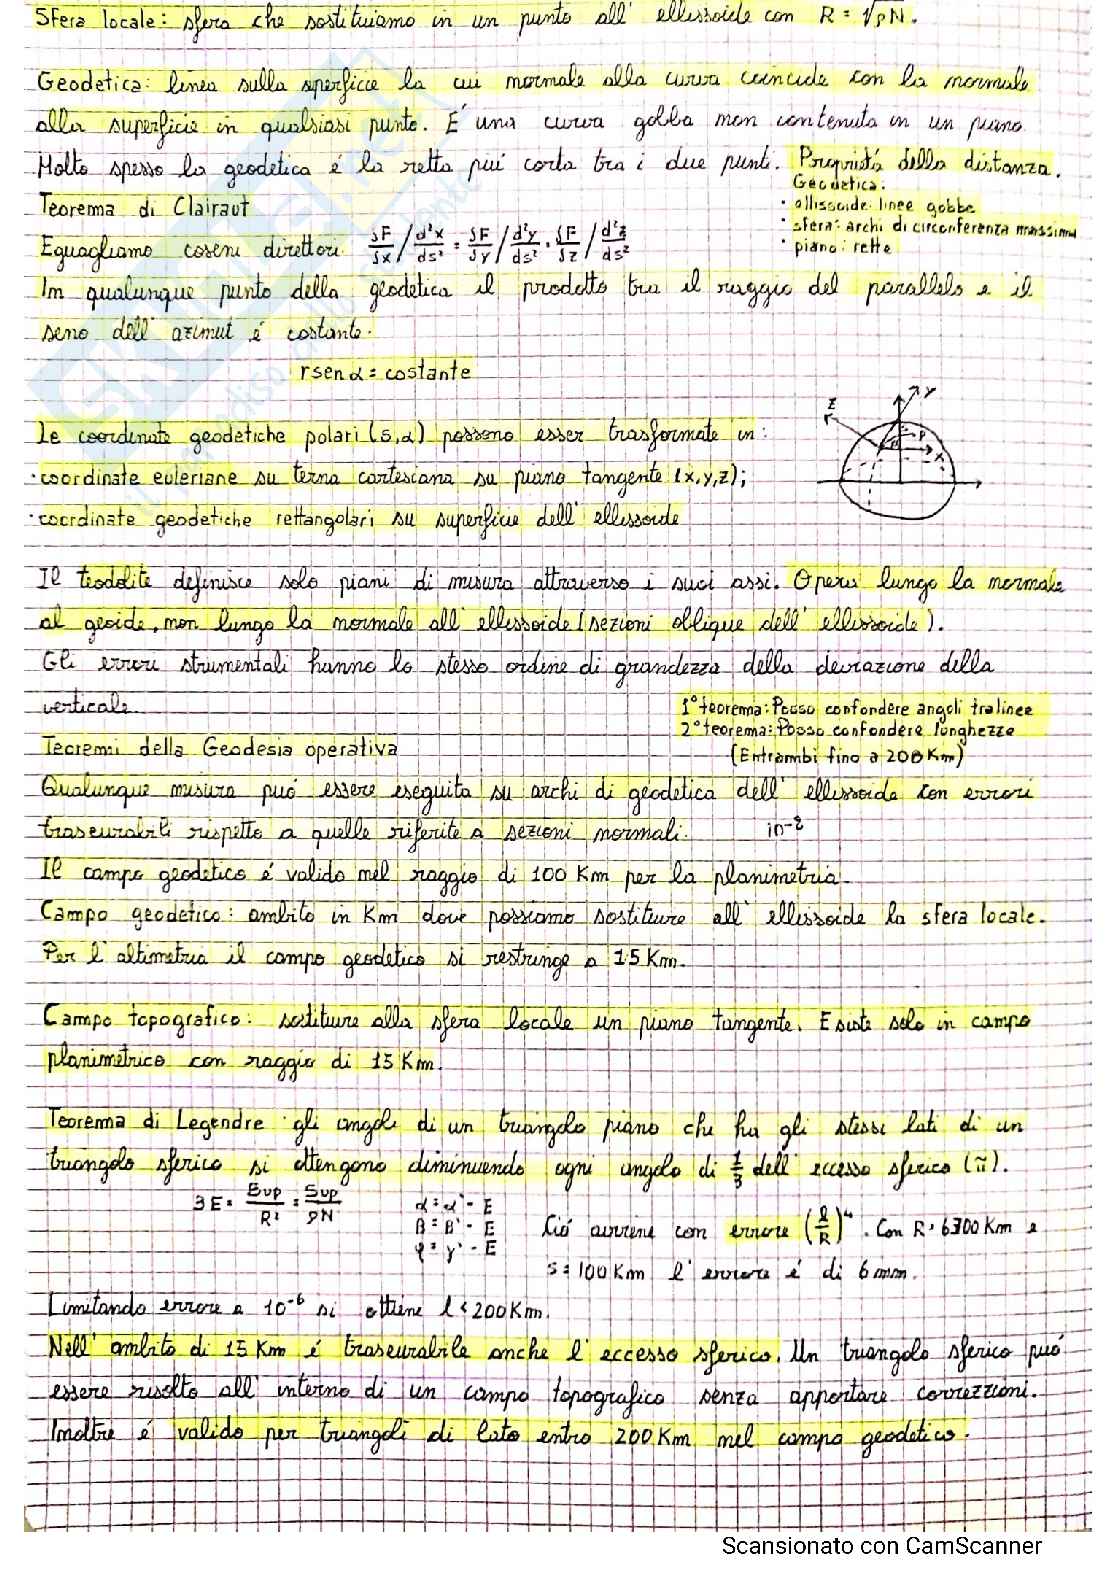 Sfera locale: sfera che sostituiamo in un punto all' ellissoide con R = √ρN.
Geodetica: linea sulla superficie la cui normale alla curva coincide con la normale
alla superficie in qualsiasi punto. É una curva gobba non contenuta in un piano.
Molto spesso la geodetica é la retta piú corta tra i due punti. Proprietá della distanza.
Geodetica:
· ellissoide: linee gobbe
· sfera: archi di circonferenza massima
· piano: rette
Teorema di Clairaut
Eguagliamo coseni direttori. δF/δx / d²x/ds² = δF/δy / d²y/ds² = δF/δz / d²z/ds²
In qualunque punto della geodetica il prodotto tra il raggio del parallelo e il
seno dell' azimut é costante.
r sen α = costante
Le coordinate geodetiche polari (s,α) possono esser trasformate in:
· coordinate euleriane su terna cartesiana su piano tangente (x,y,z);
· coordinate geodetiche rettangolari su superficie dell' ellissoide
Z Y X P
Il teodolite definisce solo piani di misura attraverso i suoi assi. Opera lungo la normale
al geoide, non lungo la normale all' ellissoide (sezioni oblique dell' ellissoide).
Gli errori strumentali hanno lo stesso ordine di grandezza della deviazione della
verticale.
1° teorema: Posso confondere angoli tra linee
2° teorema: Posso confondere lunghezze
(Entrambi fino a 200 Km)
Teoremi della Geodesia operativa
Qualunque misura puó essere eseguita su archi di geodetica dell' ellissoide con errori
trascurabili rispetto a quelle riferite a sezioni normali.
Il campo geodetico é valido nel raggio di 100 Km per la planimetria.
Campo geodetico: ambito in Km dove possiamo sostituire all' ellissoide la sfera locale.
Per l' altimetria il campo geodetico si restringe a 15 Km.
Campo topografico: sostituire alla sfera locale un piano tangente. Esiste solo in campo
planimetrico con raggio di 15 Km.
Teorema di Legendre: gli angoli di un triangolo piano che ha gli stessi lati di un
triangolo sferico si ottengono diminuendo ogni angolo di 1/3 dell' eccesso sferico (π).
3E = Sup/R² = Sup/ρN
α = α' - E
β = β' - E
φ = γ' - E
Ció avviene con errore (l/R)⁴. Con R = 6300 Km e
s = 100 Km l' errore é di 6 mm.
Limitando errore a 10⁻⁶ si ottiene l < 200 Km.
Nell' ambito di 15 Km é trascurabile anche l' eccesso sferico. Un triangolo sferico puó
essere risolto all' interno di un campo topografico senza apportare correzioni.
Inoltre é valido per triangoli di lato entro 200 Km nel campo geodetico.
Scansionato con CamScanner